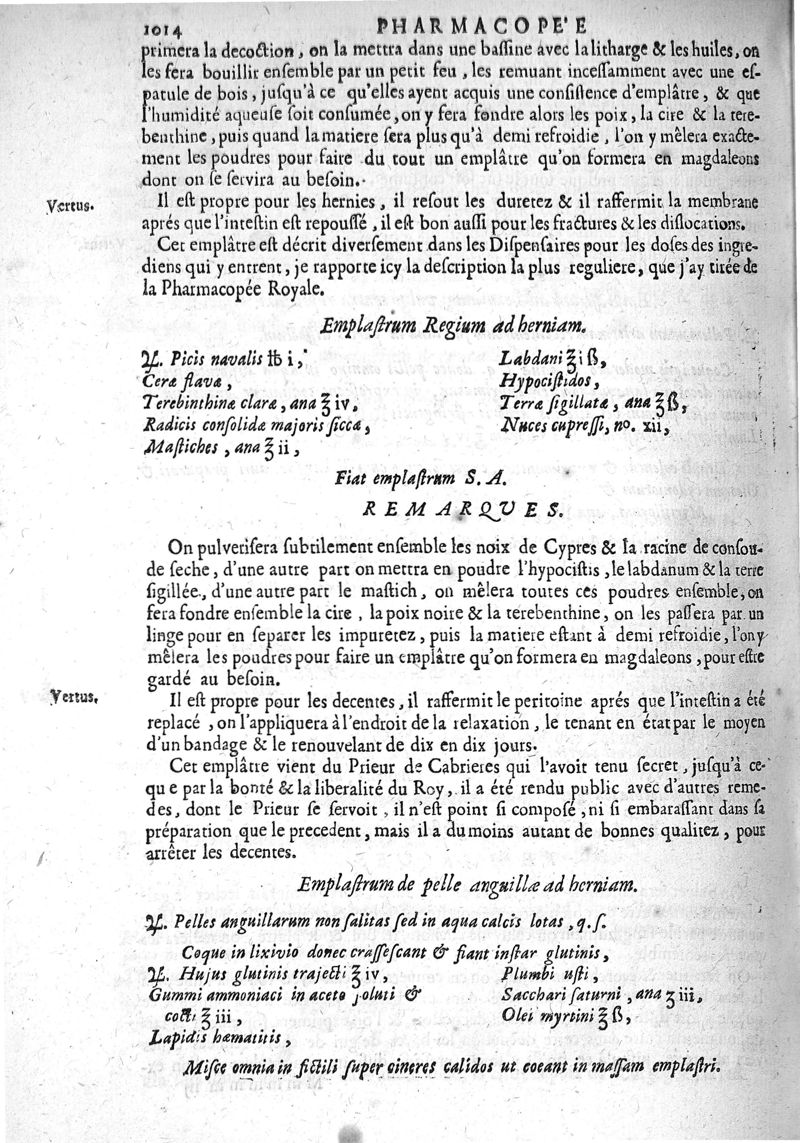 1014 PHARMACOPE'E
primera la decoction, on la mettra dans une bassine avec la litharge & les huiles, on
les fera bouillir ensemble par un petit feu, les remuant incessamment avec une es-
patule de bois, jusqu'à ce qu'elles ayent acquis une consistence d'emplâtre, & que
l'humidité aqueuse soit consumée, on y fera fondre alors les poix, la cire & la tere-
benthine, puis quand la matiere sera plus qu'à demi refroidie, l'on y mêlera exacte-
ment les poudres pour faire du tout un emplâtre qu'on formera en magdaleons
dont on se servira au besoin.
Vertus. Il est propre pour les hernies, il resout les duretez & il raffermit la membrane
aprés que l'intestin est repoussé, il est bon aussi pour les fractures & les dislocations.
Cet emplâtre est décrit diversement dans les Dispensaires pour les doses des ingre-
diens qui y entrent, je rapporte icy la description la plus reguliere, que j'ay tirée de
la Pharmacopée Royale.
Emplastrum Regium ad herniam.
♃. Picis navalis ℔ i,
Ceræ flavæ,
Terebinthinæ claræ, ana ℥ iv,
Radicis consolidæ majoris siccæ,
Mastiches, ana ℥ ii,
Labdani ℥ i ß,
Hypocistidos,
Terræ sigillatæ, ana ℥ ß,
Nuces cupressi, no. xii,
Fiat emplastrum S. A.
REMARQUES.
On pulverisera subtilement ensemble les noix de Cypres & la racine de consou-
de seche, d'une autre part on mettra en poudre l'hypocistis, le labdanum & la terre
sigillée, d'une autre part le mastich, on mêlera toutes ces poudres ensemble, on
fera fondre ensemble la cire, la poix noire & la terebenthine, on les passera par un
linge pour en separer les impuretez, puis la matiere estant à demi refroidie, l'on y
mêlera les poudres pour faire un emplâtre qu'on formera en magdaleons, pour estre
gardé au besoin.
Vertus. Il est propre pour les decentes, il raffermit le peritoine aprés que l'intestin a été
replacé, on l'appliquera à l'endroit de la relaxation, le tenant en état par le moyen
d'un bandage & le renouvelant de dix en dix jours.
Cet emplâtre vient du Prieur de Cabrieres qui l'avoit tenu secret, jusqu'à ce-
que par la bonté & la liberalité du Roy, il a été rendu public avec d'autres reme-
des, dont le Prieur se servoit, il n'est point si composé, ni si embarassant dans sa
préparation que le precedent, mais il a du moins autant de bonnes qualitez, pour
arrêter les decentes.
Emplastrum de pelle anguillæ ad herniam.
♃. Pelles anguillarum non salitas sed in aqua calcis lotas, q. s.
Coque in lixivio donec crassescant & fiant instar glutinis,
♃. Hujus glutinis trajecti ℥ iv,
Gummi ammoniaci in aceto soluti &
cocti ℥ iii,
Lapidis hæmatitis,
Plumbi usti,
Sacchari saturni, ana ʒ iii,
Olei myrtini ℥ ß,
Misce omnia in fictili super cineres calidos ut coeant in massam emplastri.